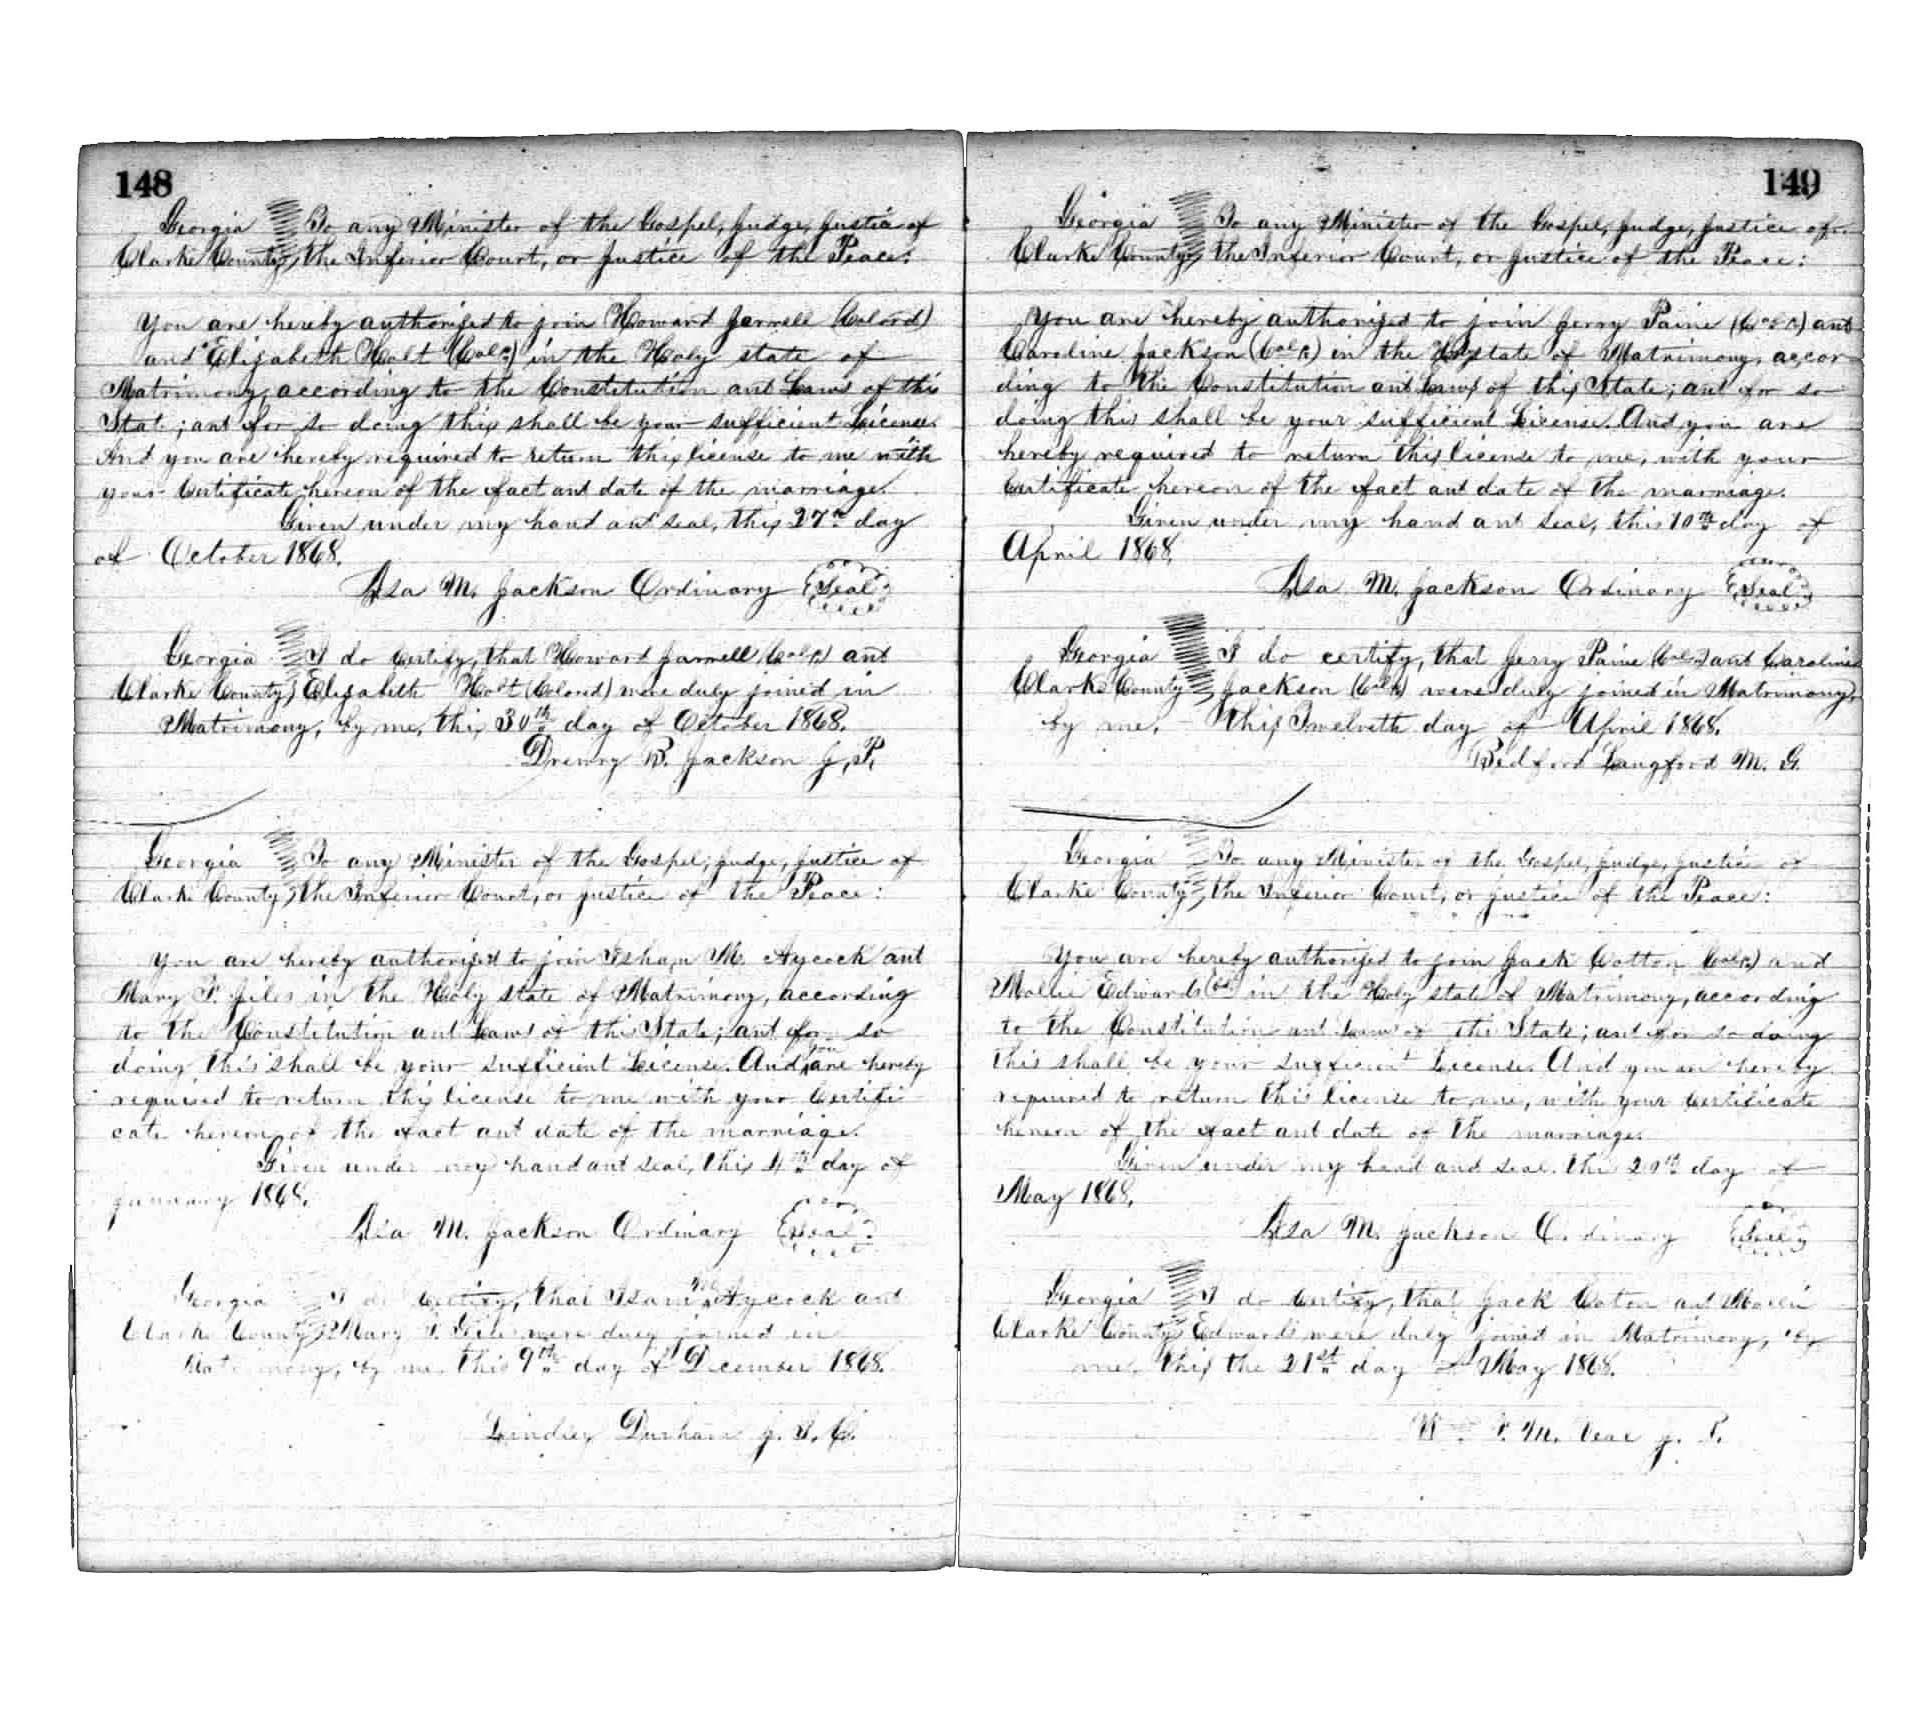 148
Georgia To any Minister of the Gospel, Judge, Justice of
Clarke County, the Inferior Court, or Justice of the Peace:
You are hereby authorised to join Howard Jarrell (Colord)
and Elizabeth Holt (Cold) in the Holy state of
Matrimony, according to the Constitution and Laws of this
State; and for so doing this shall be your sufficient License.
And you are hereby required to return this license to me with
your Certificate hereon of the fact and date of the marriage.
Given under my hand and seal, this 27th day
of October 1868.
Asa M. Jackson Ordinary Seal
Georgia I do certify, that Howard Jarrell (Cold) and
Clarke County, Elizabeth Holt (Colored) were duly joined in
Matrimony, by me, this 30th day of October 1868.
Drewry B. Jackson J. P.
Georgia To any Minister of the Gospel, Judge, Justice of
Clarke County, the Inferior Court, or Justice of the Peace:
You are hereby authorised to join Isham M. Aycock and
Mary F. Jiles in the Holy state of Matrimony, according
to the Constitution and Laws of this State; and for so
doing this shall be your sufficient License. And you are hereby
required to return this license to me with your Certifi
cate hereon of the fact and date of the marriage.
Given under my hand and seal, this 4th day of
January 1868.
Asa M. Jackson Ordinary Seal
Georgia I do certify, that Isam M. Aycock and
Clarke County, Mary were duly joined in
Matrimony, by me this 9th day of December 1868.
Lindsey Durham J. I. C.
149
Georgia To any Minister of the Gospel, Judge, Justice of
Clarke County, the Inferior Court, or Justice of the Peace:
You are hereby authorised to join Jerry Paine (Cold) and
Caroline Jackson (Cold) in the Holy state of Matrimony, accor
ding to the Constitution and Laws of this State; and for so
doing this shall be your sufficient License. And you are
hereby required to return this license to me, with your
Certificate hereon of the fact and date of the marriage.
Given under my hand and seal, this 10th day of
April 1868.
Asa M. Jackson Ordinary Seal
Georgia I do certify, that Jerry Paine (Cold) and Caroline
Clarke County Jackson (Cold) were duly joined in Matrimony,
by me, this Twelveth day of April 1868.
Bedford Langford M. G.
Georgia To any Minister of the Gospel, Judge, Justice of
Clarke County, the Inferior Court, or Justice of the Peace:
You are hereby authorised to join Jack Cotton (Cold) and
Mollie Edwards (Cold) in the Holy state of Matrimony, according
to the Constitution and Laws of this State; and for so doing
this shall be your sufficient License. And you are hereby
required to return this license to me, with your Certificate
hereon of the fact and date of the marriage.
Given under my hand and seal, this 20th day of
May 1868.
Asa M. Jackson Ordinary Seal
Georgia I do certify, that Jack Coton and
Clarke County Edwards were duly joined in Matrimony, by
me, this the 21st day of May 1868.
J. P.